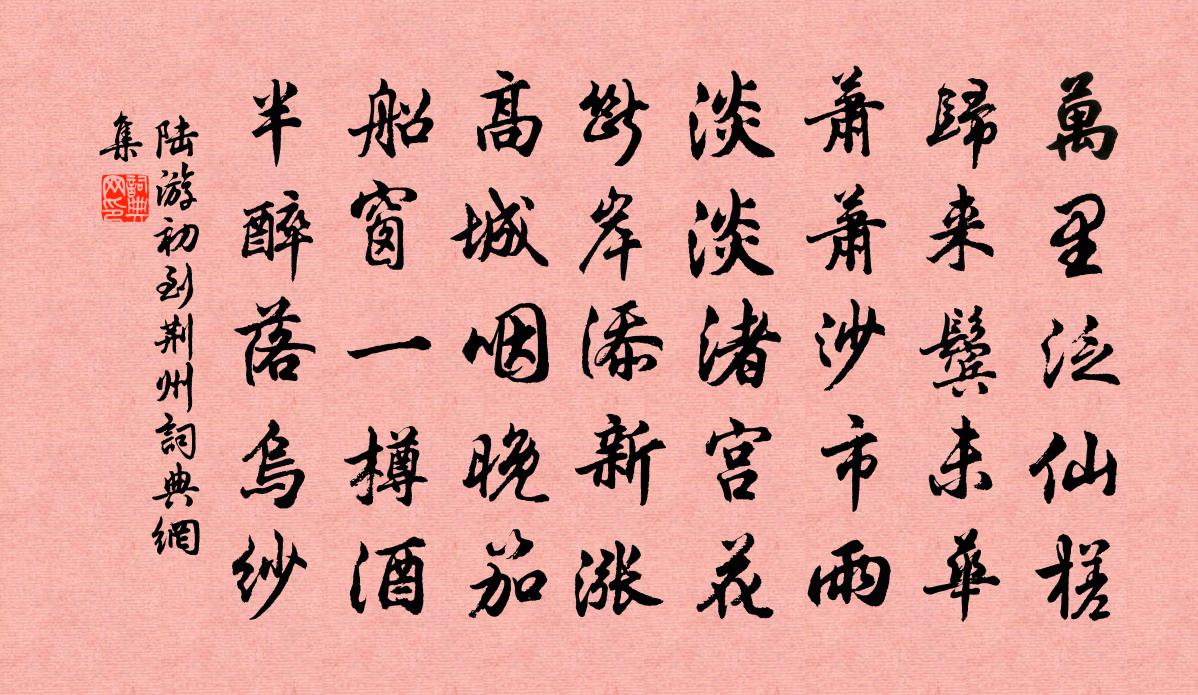 萬里泛仙槎
歸来鬢未華
蕭蕭沙市雨
淡淡渚宫花
斷岸添新漲
高城咽晚笳
船窗一樽酒
半醉落烏紗
陆游初到荆州詞典網
集
詞典网印